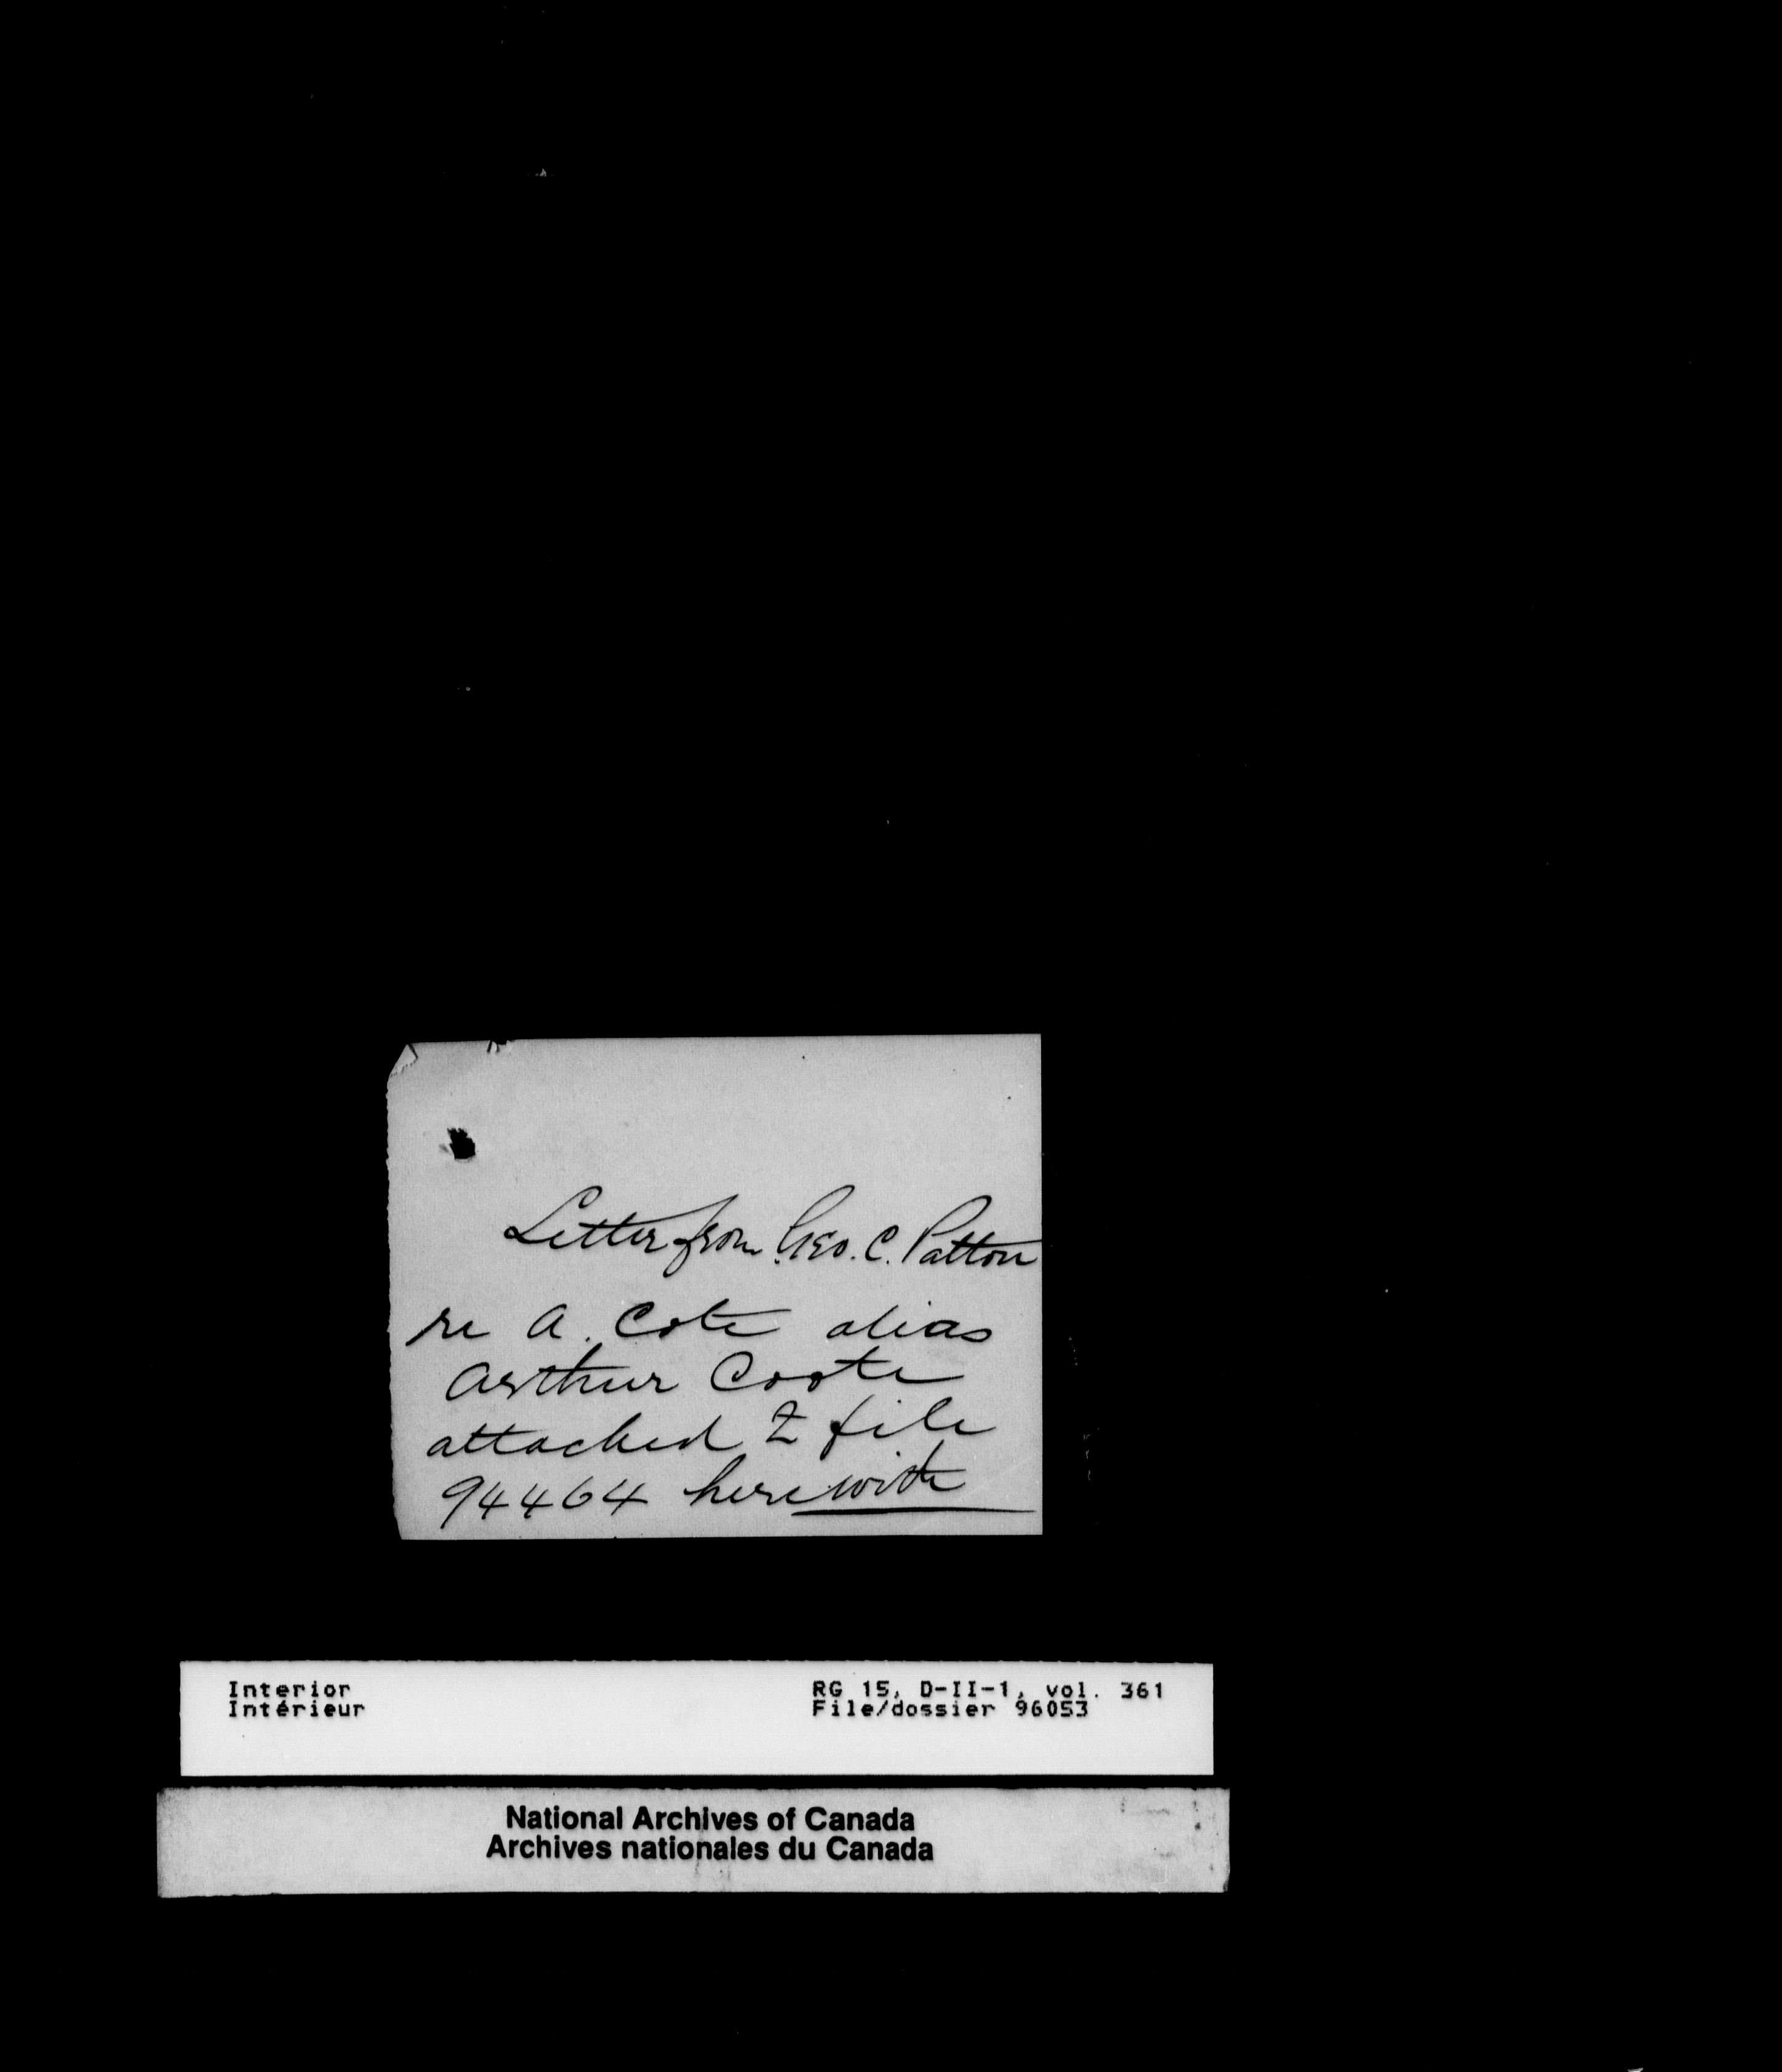 Letter from Geo. C. Patton
re A. Cote alias
Arthur Coote
attached to file
94464 herewith
Interior
Intérieur
RG 15, D-II-1, vol. 361
File/dossier 96053
National Archives of Canada
Archives nationales du Canada